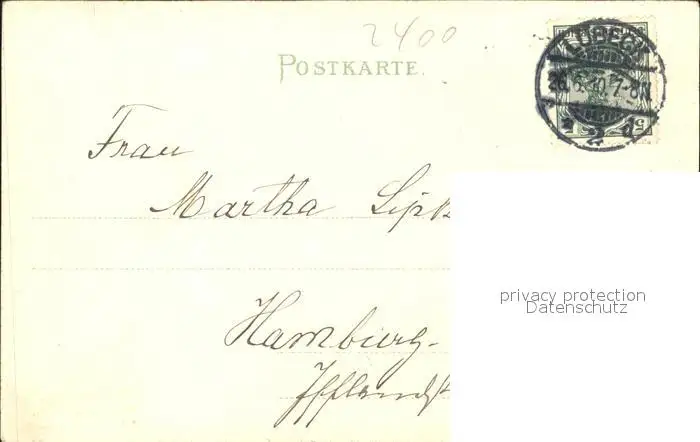 2400
POSTKARTE.
LÜBECK
7-8N
5 5
Frau
Martha
Hamburg-
privacy protection
Datenschutz